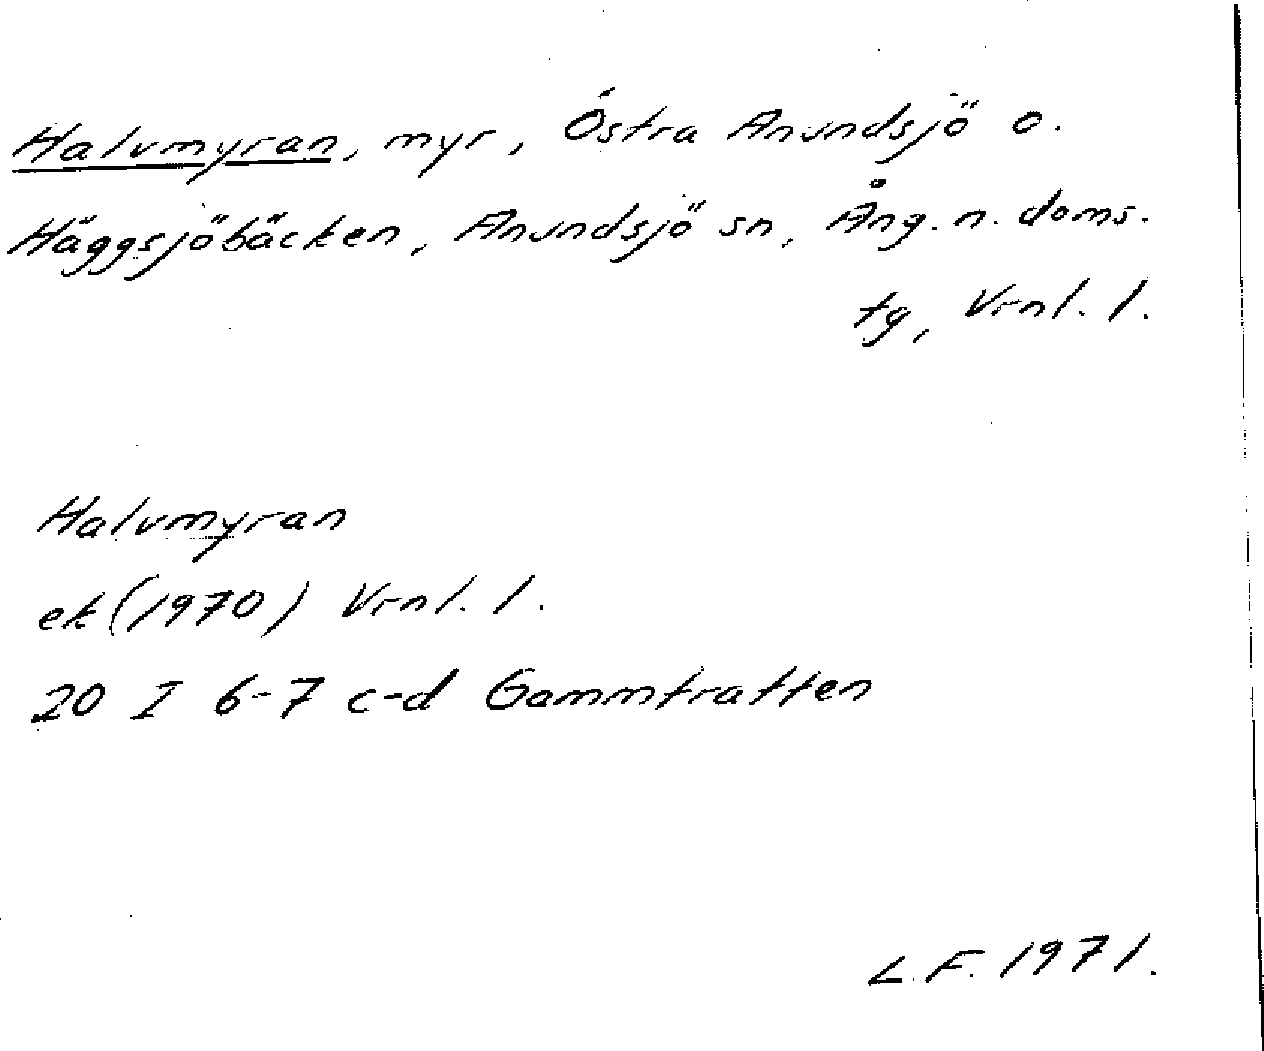 Halvmyran, myr, Östra Anundsjö o.
Häggsjöbäcken, Anundsjö sn, Ång. n. doms.
tg, Vrnl. l.
Halvmyran
ek (1970) Vrnl. l.
20 I 6-7 c-d Gammtratten
L.F. 1971.